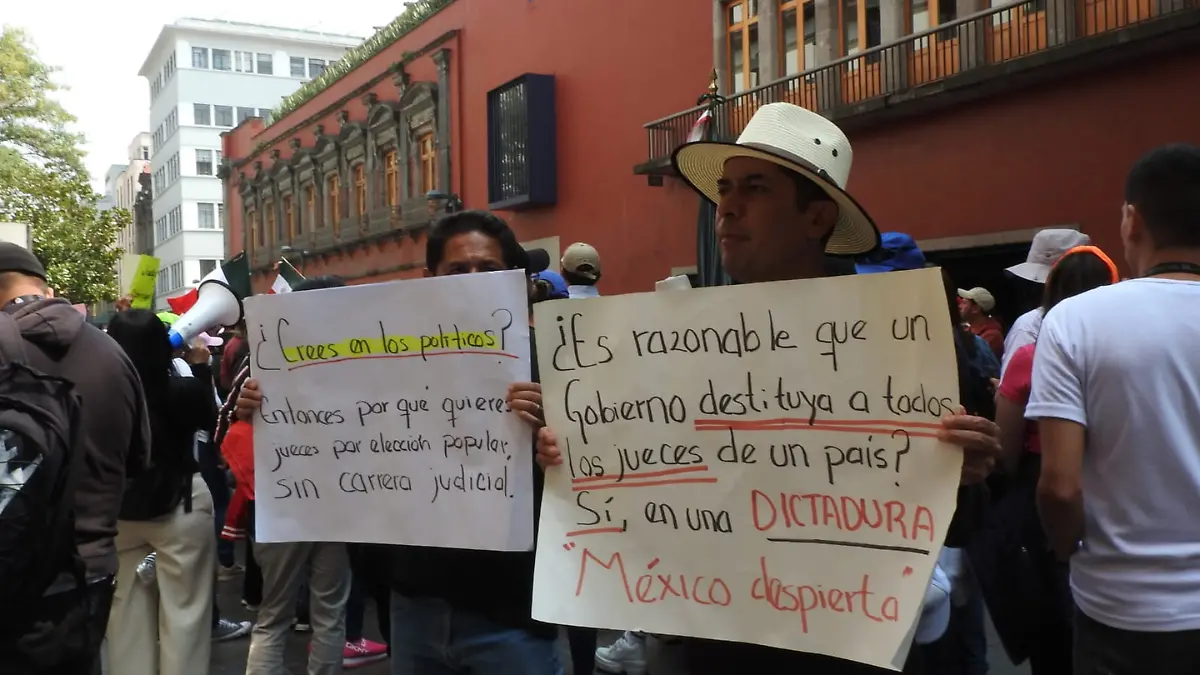 ¿Crees en los políticos?
Entonces por qué quieres
jueces por elección popular,
sin carrera judicial.
¿Es razonable que un
Gobierno destituya a todos
los jueces de un país?
Sí, en una DICTADURA
"México despierta"